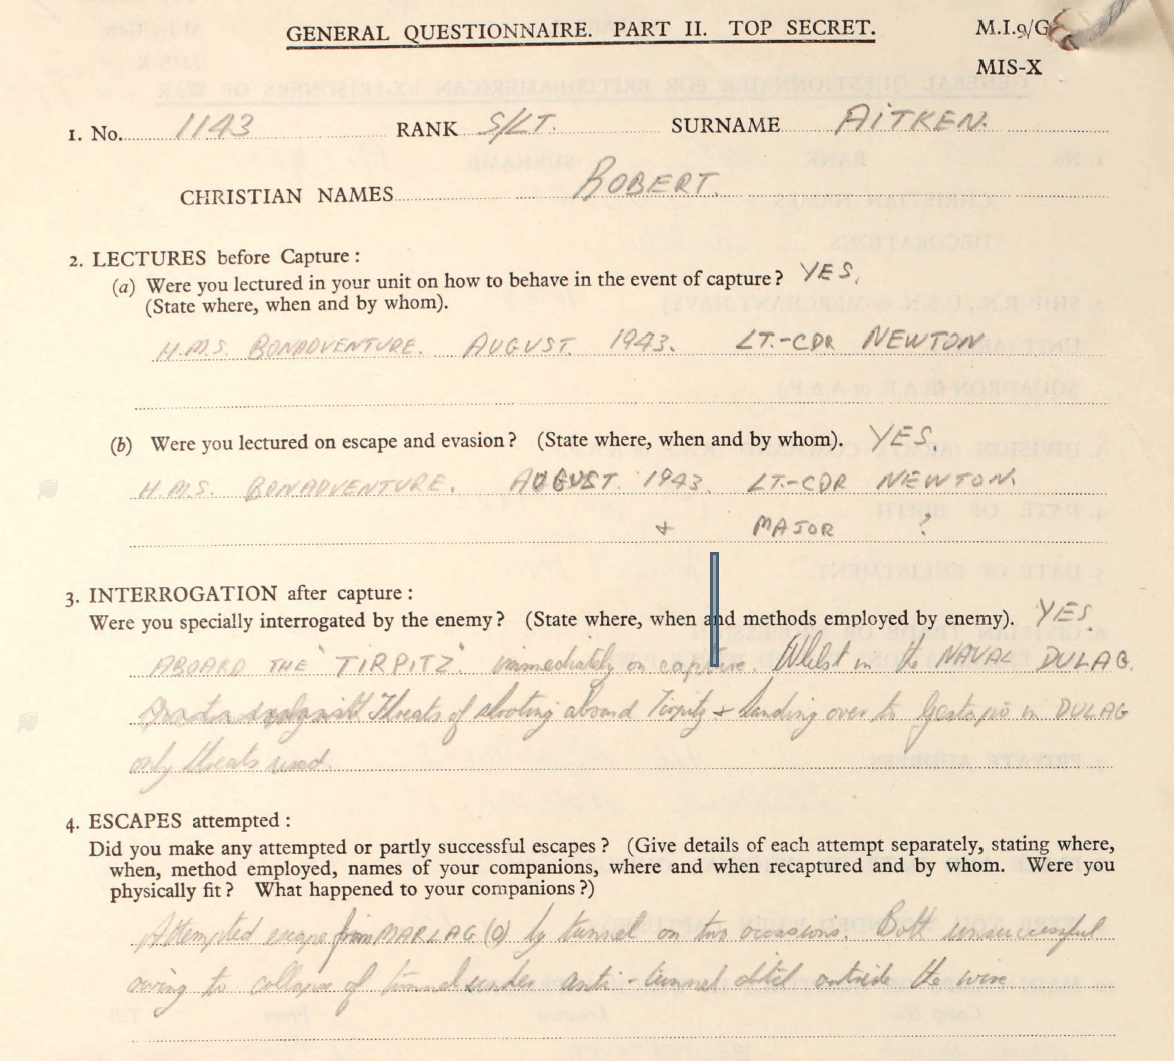 GENERAL QUESTIONNAIRE. PART II. TOP SECRET.
M.I.9/G
MIS-X
1. No. 1143 RANK S/LT. SURNAME AITKEN.
CHRISTIAN NAMES ROBERT.
2. LECTURES before Capture :
(a) Were you lectured in your unit on how to behave in the event of capture? YES.
(State where, when and by whom).
H.M.S. BONADVENTURE. AUGUST. 1943. LT.-CDR NEWTON
(b) Were you lectured on escape and evasion? (State where, when and by whom). YES.
H.M.S. BONADVENTURE. AUGUST. 1943. LT.-CDR NEWTON.
+ MAJOR ?
3. INTERROGATION after capture :
Were you specially interrogated by the enemy? (State where, when and methods employed by enemy). YES.
ABOARD THE "TIRPITZ". immediately on capture. Whilst in the NAVAL DULAG.
Threats of shooting aboard Tirpitz + handing over to Gestapo in DULAG
only threats used.
4. ESCAPES attempted :
Did you make any attempted or partly successful escapes? (Give details of each attempt separately, stating where,
when, method employed, names of your companions, where and when recaptured and by whom. Were you
physically fit? What happened to your companions?)
Attempted escape from MARLAG (O) by tunnel on two occasions. Both unsuccessful
owing to collapse of tunnel under anti-tunnel ditch outside the wire